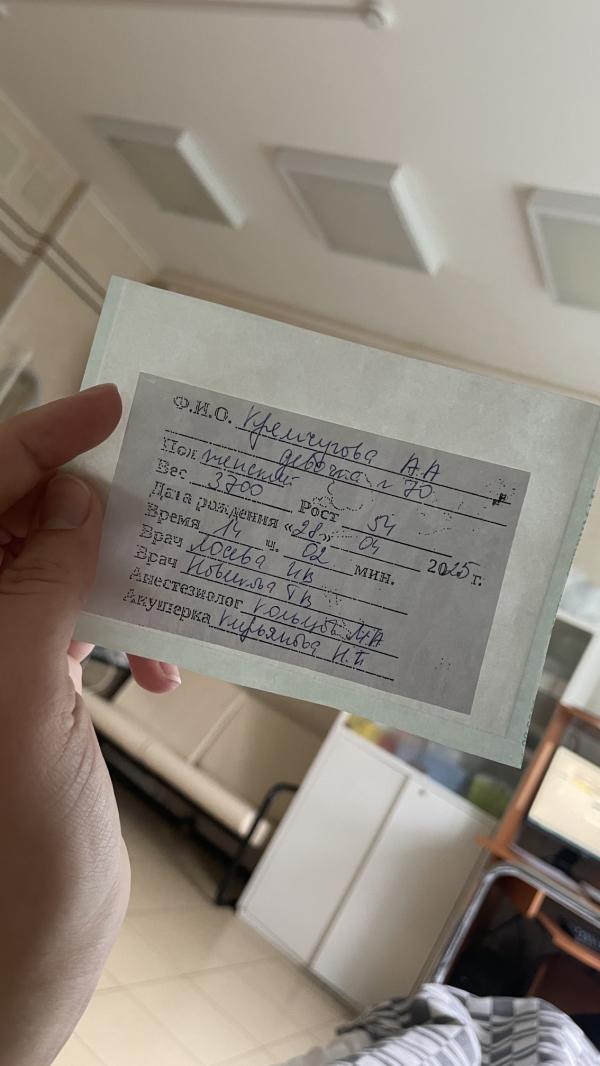 Ф.И.О. Кремчугова А А
девочка 70
Пол женский
Вес 3700 Рост 54
Дата рождения «28» 04 2025 г.
Время 14 ч. 02 мин.
Врач Лосева И В
Врач Новикова Т В
Анестезиолог М А
Акушерка Кирьянова Н. П